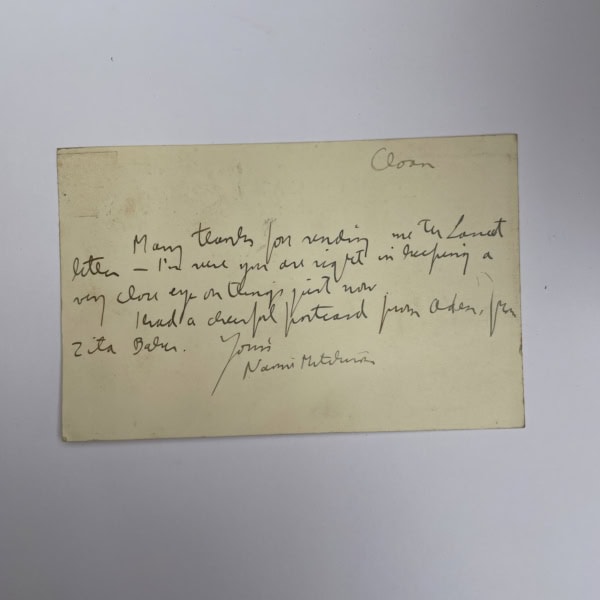 Cloan
Many thanks for sending me the Lancet
letter — I'm sure you are right in keeping a
very close eye on things just now.
I had a cheerful postcard from Aden, from
Zita Baker.
Yours
Naomi Mitchison